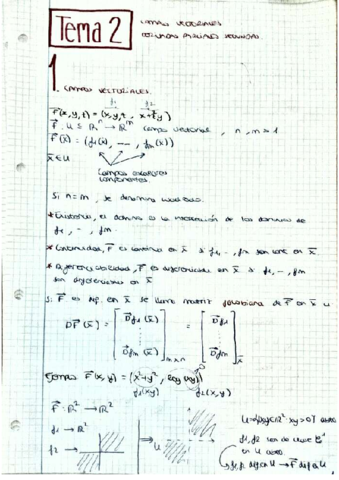 Tema 2
CAMPOS VECTORIALES
DERIVADAS PARCIALES SEGUNDAS.
1. CAMPOS VECTORIALES.
f1 f2
F(x,y,t) = (x,y,t, x+ty)
F: U ⊆ ℝⁿ → ℝᵐ campo vectorial, n, m > 1
F(x̄) = (f1(x̄), ..., fm(x̄))
x̄ ∈ U
Campos escalares
componentes.
Si n=m, se denomina
* Existencia, el dominio es la intersección de los dominios de
f1, ..., fm.
* Continuidad, F es continua en x̄ si f1, ..., fm son cont en x̄.
* Diferenciabilidad, F es diferenciable en x̄ si f1, ..., fm
son diferenciables en x̄
Si F es dif. en x̄ se llama matriz jacobiana de F en x̄ a:
DF(x̄) = [Df1(x̄) ⋮ Dfm(x̄)] m×n = [Df1 ⋮ Dfm] x̄
F(x,y) = (x²+y², log(xy))
f1(x,y) f2(x,y)
F: ℝ² → ℝ²
f1 → ℝ²
f2 → ⇒ U
U = xy>0
f1, f2 son de
en U
f1, f2 dif en U → F dif en U